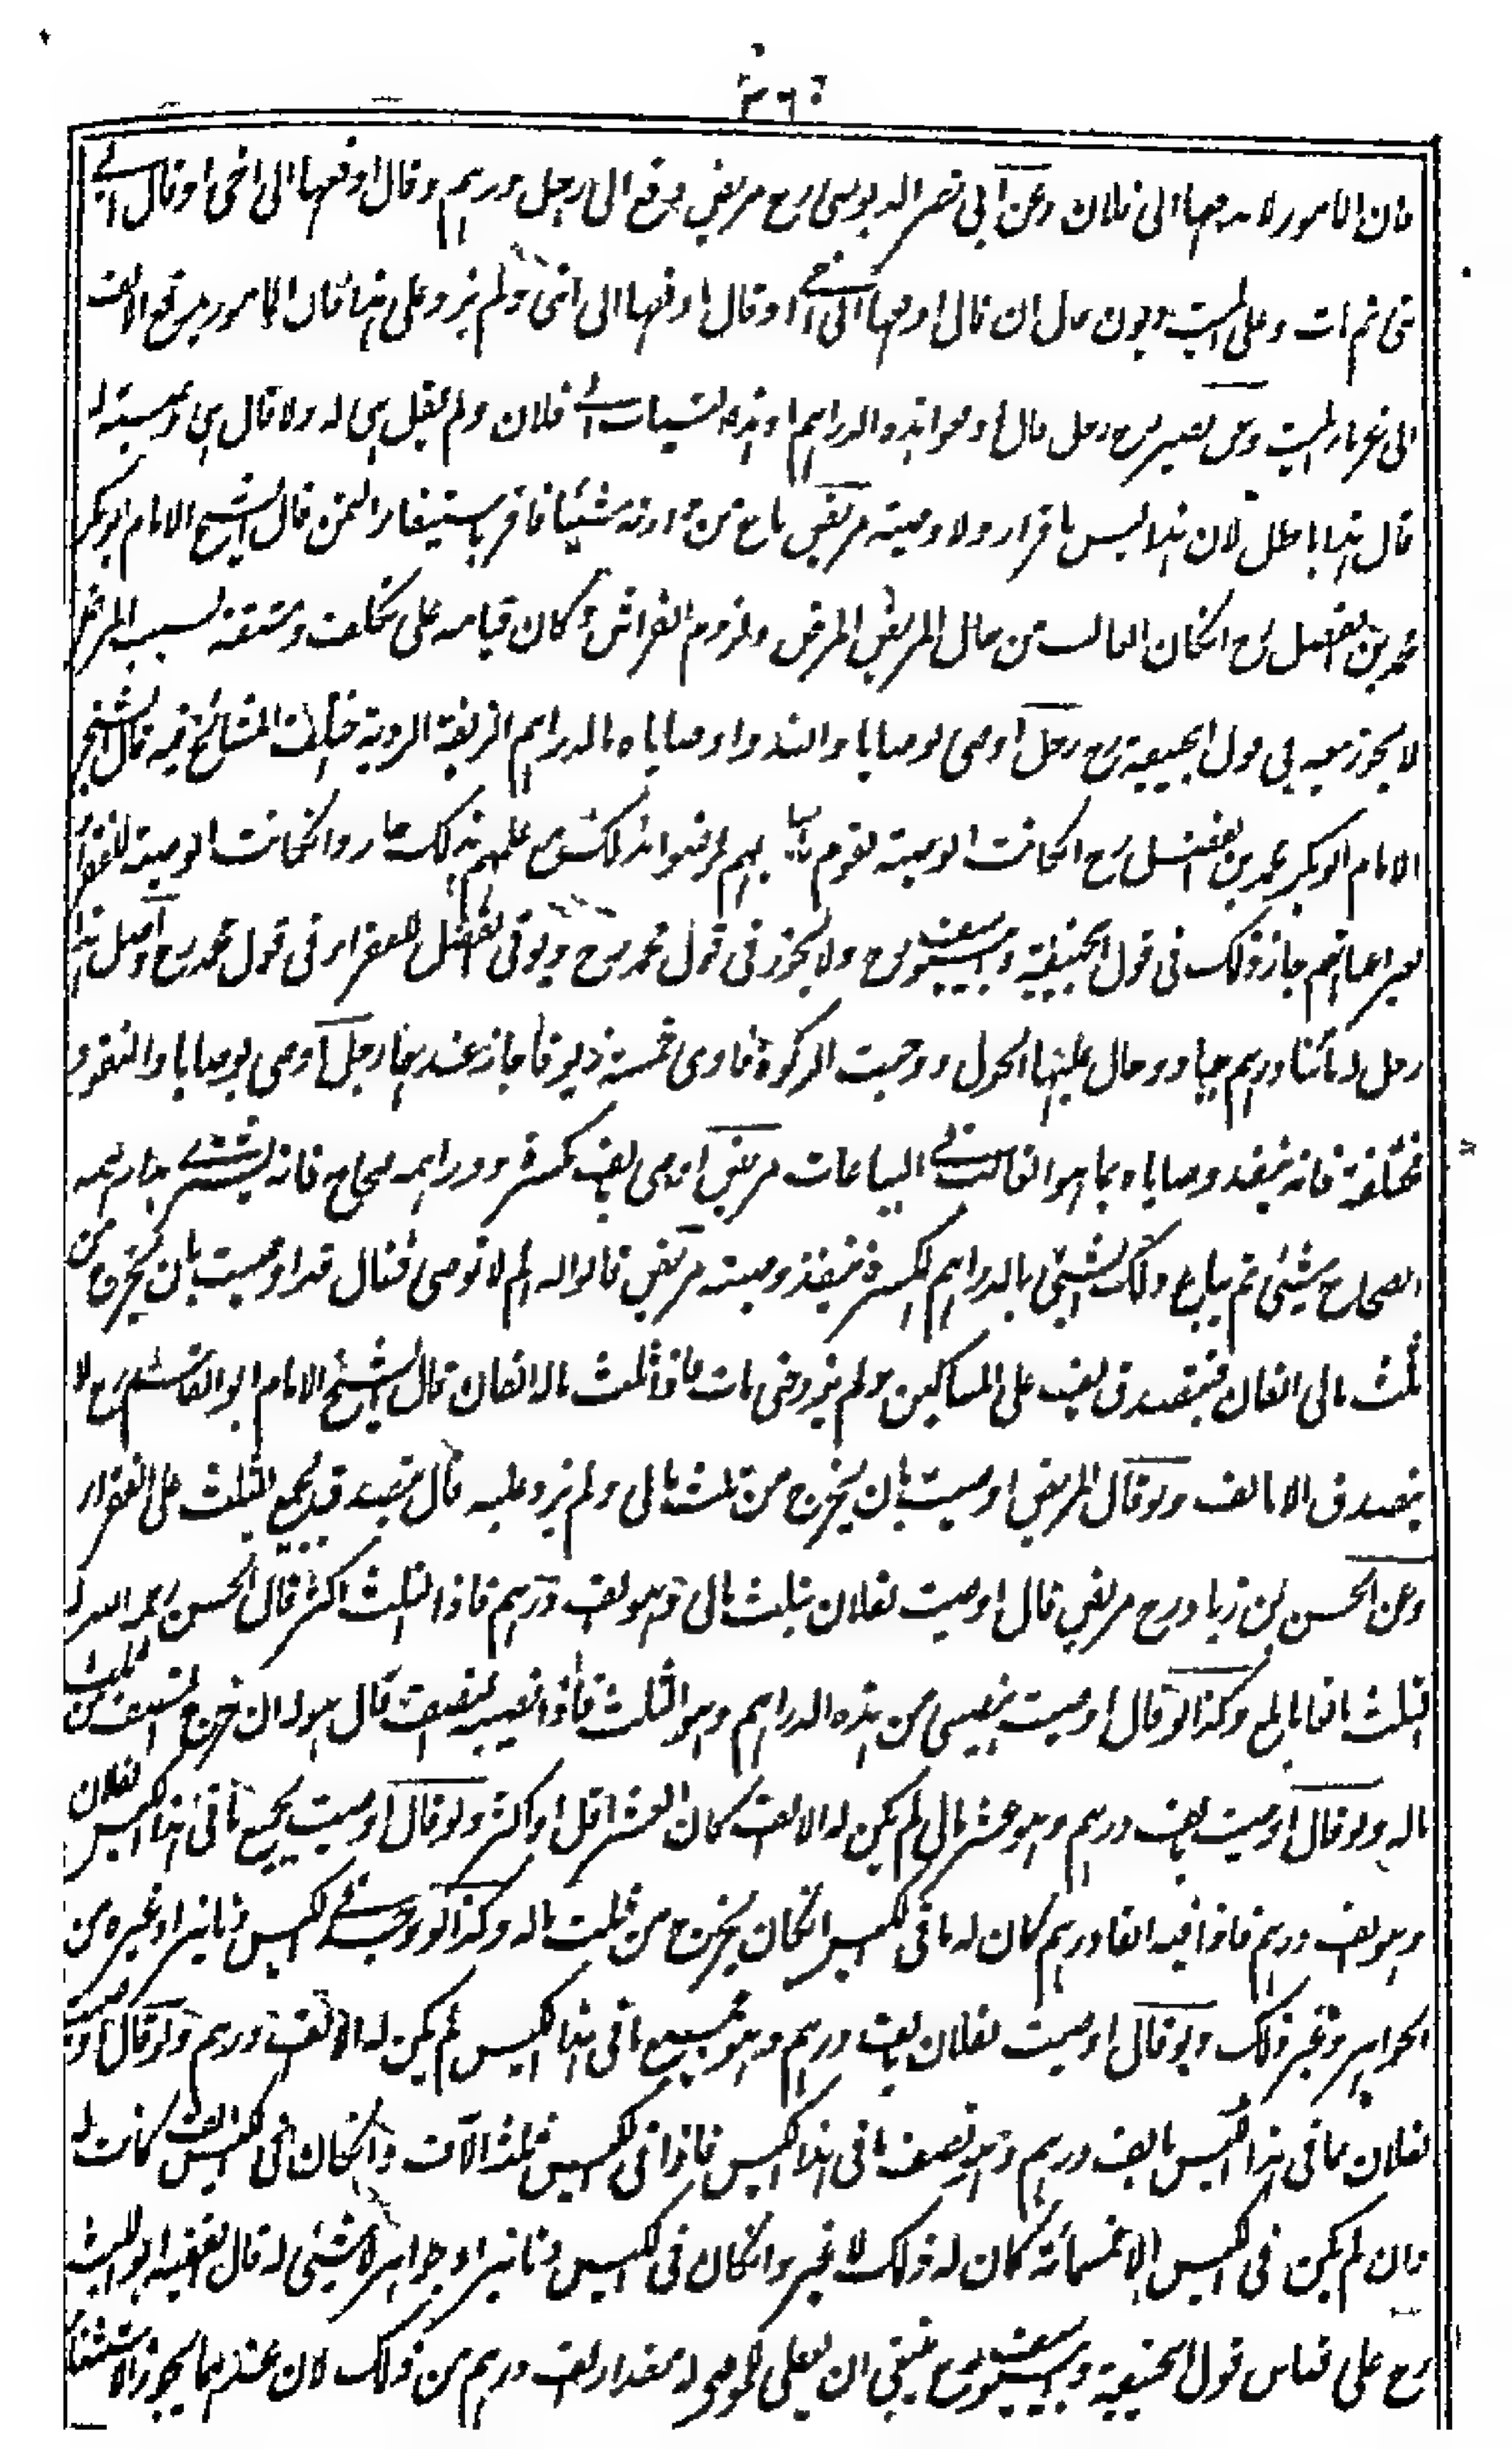 فان المامور لا يدفعها الى فلان وعن ابى نصر الدبوسى رح مريض دفع الى رجل دراهم وقال ادفعها الى اخى او قال الى
ابنى ثم مات وعلى الميت ديون قال ان قال ادفعها الى اخى او قال ادفعها الى ابنى ولم يزد على هذا فان المامور يدفع الالف
الى غرماء الميت وعن نصير رح رجل قال ادفعوا هذه الدراهم او هذه الثياب الى فلان ولم يقل هى له ولا قال هى وصية له
قال هذا باطل لان هذا ليس باقرار ولا وصية مريض باع من وارثه شيئا فاقر باستيفاء الثمن قال الشيخ الامام ابو بكر
محمد بن الفضل رح انكان الغالب من حال المريض المرض ولزوم الفراش وكان قيامه على تكلف ومشقة بسبب المرض
لا يجوز بيعه فى قول ابيحنيفة رح رجل اوصى بوصايا وانفذوا وصاياه بالدراهم الزيفة الردية اختلف المشائخ فيه قال الشيخ
الامام ابو بكر محمد بن الفضل رح انكانت الوصية لقوم باعيانهم فرضوا بذلك مع علمهم بذلك جاز وانكانت الوصية للفقراء
بغير اعيانهم جاز ذلك فى قول ابيحنيفة وابييوسف رح ولا يجوز فى قول محمد رح ويوفى الفضل للفقراء فى قول محمد رح اصل هذا
رجل له مائتا درهم جياد وحال عليها الحول ووجبت الزكوة فادى خمسة زيوفا جاز عندهما رجل اوصى بوصايا والنقود
مختلفة فانه ينفذ وصاياه بما هو الغالب فى البياعات مريض اوصى بالف مكسرة ودراهمه صحاح فانه يشترى بدراهمه
الصحاح شيئ ثم يباع ذلك الشيئ بالدراهم المكسرة فينفذ وصيته مريض قالوا له لم لا توصى فقال قد اوصيت بان يخرج من
ثلث مالى الفان فيتصدق بالف على المساكين ولم يزد حتى مات فاذا ثلث ماله الفان قال الشيخ الامام ابو القاسم رح لا
يتصدق الا بالف ولو قال المريض اوصيت بان يخرج من ثلث مالى ولم يزد عليه قال يتصدق بجميع الثلث على الفقراء
وعن الحسن بن زياد رح مريض قال اوصيت لفلان بثلث مالى وهو الف درهم فاذا الثلث اكثر قال الحسن رحمه الله له
الثلث بالغا ما بلغ وكذا لو قال اوصيت بنصيبى من هذه الدراهم وهو الثلث فاذا نصيبه النصف قال هو له ان خرج النصف من ثلث
ماله ولو قال اوصيت بالف درهم وهو عشر مالى لم يكن له الا الف كان العشر اقل او اكثر ولو قال اوصيت بجميع ما فى هذا الكيس لفلان
وهو الف درهم فاذا فيه الفا درهم كان له ما فى الكيس انكان يخرج من ثلث ماله وكذا لو وجد فى الكيس دنانير او غيره من
الجواهر وغير ذلك ولو قال اوصيت لفلان بالف درهم وهو جميع ما فى هذا الكيس لم يكن له الا الف درهم ولو قال اوصيت
لفلان مما فى هذا الكيس بالف درهم وهو نصف ما فى هذا الكيس فاذا فى الكيس ثلثة الآف وانكان فى الكيس الف كانت له
وان لم يكن فى الكيس الا خمسمائة كان له ذلك لا غير وانكان فى الكيس دنانير او جواهر لا شيئ له قال الفقيه ابو الليث
رح على قياس قول ابيحنيفة وابييوسف رح ينبغى ان يعطى الموصى له مقدار الف درهم من ذلك لان عندهما يجوز الاستثناء